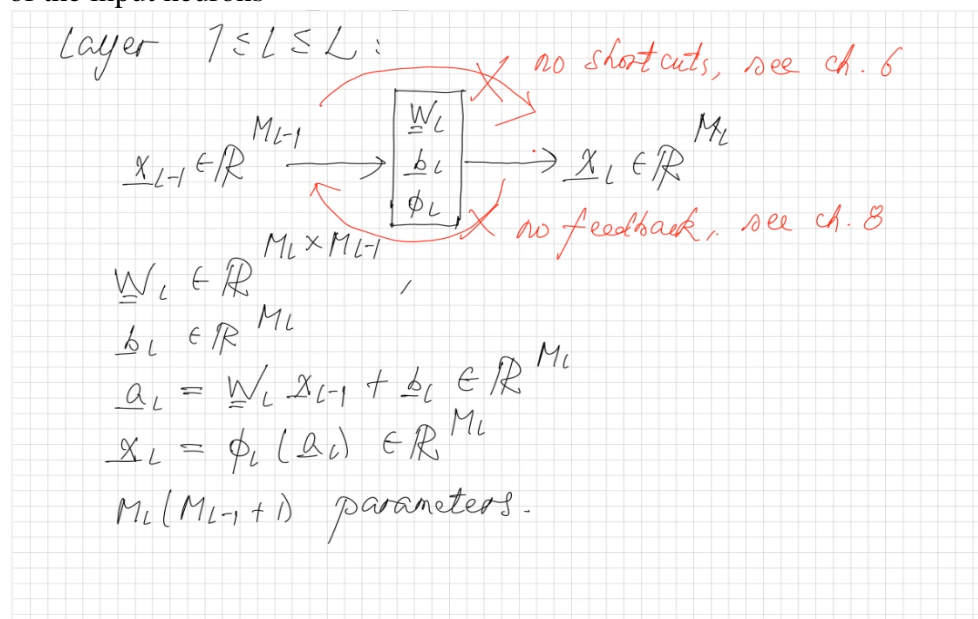 of the input neurons
Layer 1 ≤ l ≤ L :
no shortcuts, see ch. 6
x_{l-1} ∈ ℝ^{M_{l-1}}
W_l
b_l
ϕ_l
x_l ∈ ℝ^{M_l}
no feedback, see ch. 8
W_l ∈ ℝ^{M_l × M_{l-1}} ,
b_l ∈ ℝ^{M_l}
a_l = W_l x_{l-1} + b_l ∈ ℝ^{M_l}
x_l = ϕ_l (a_l) ∈ ℝ^{M_l}
M_l (M_{l-1} + 1) parameters.